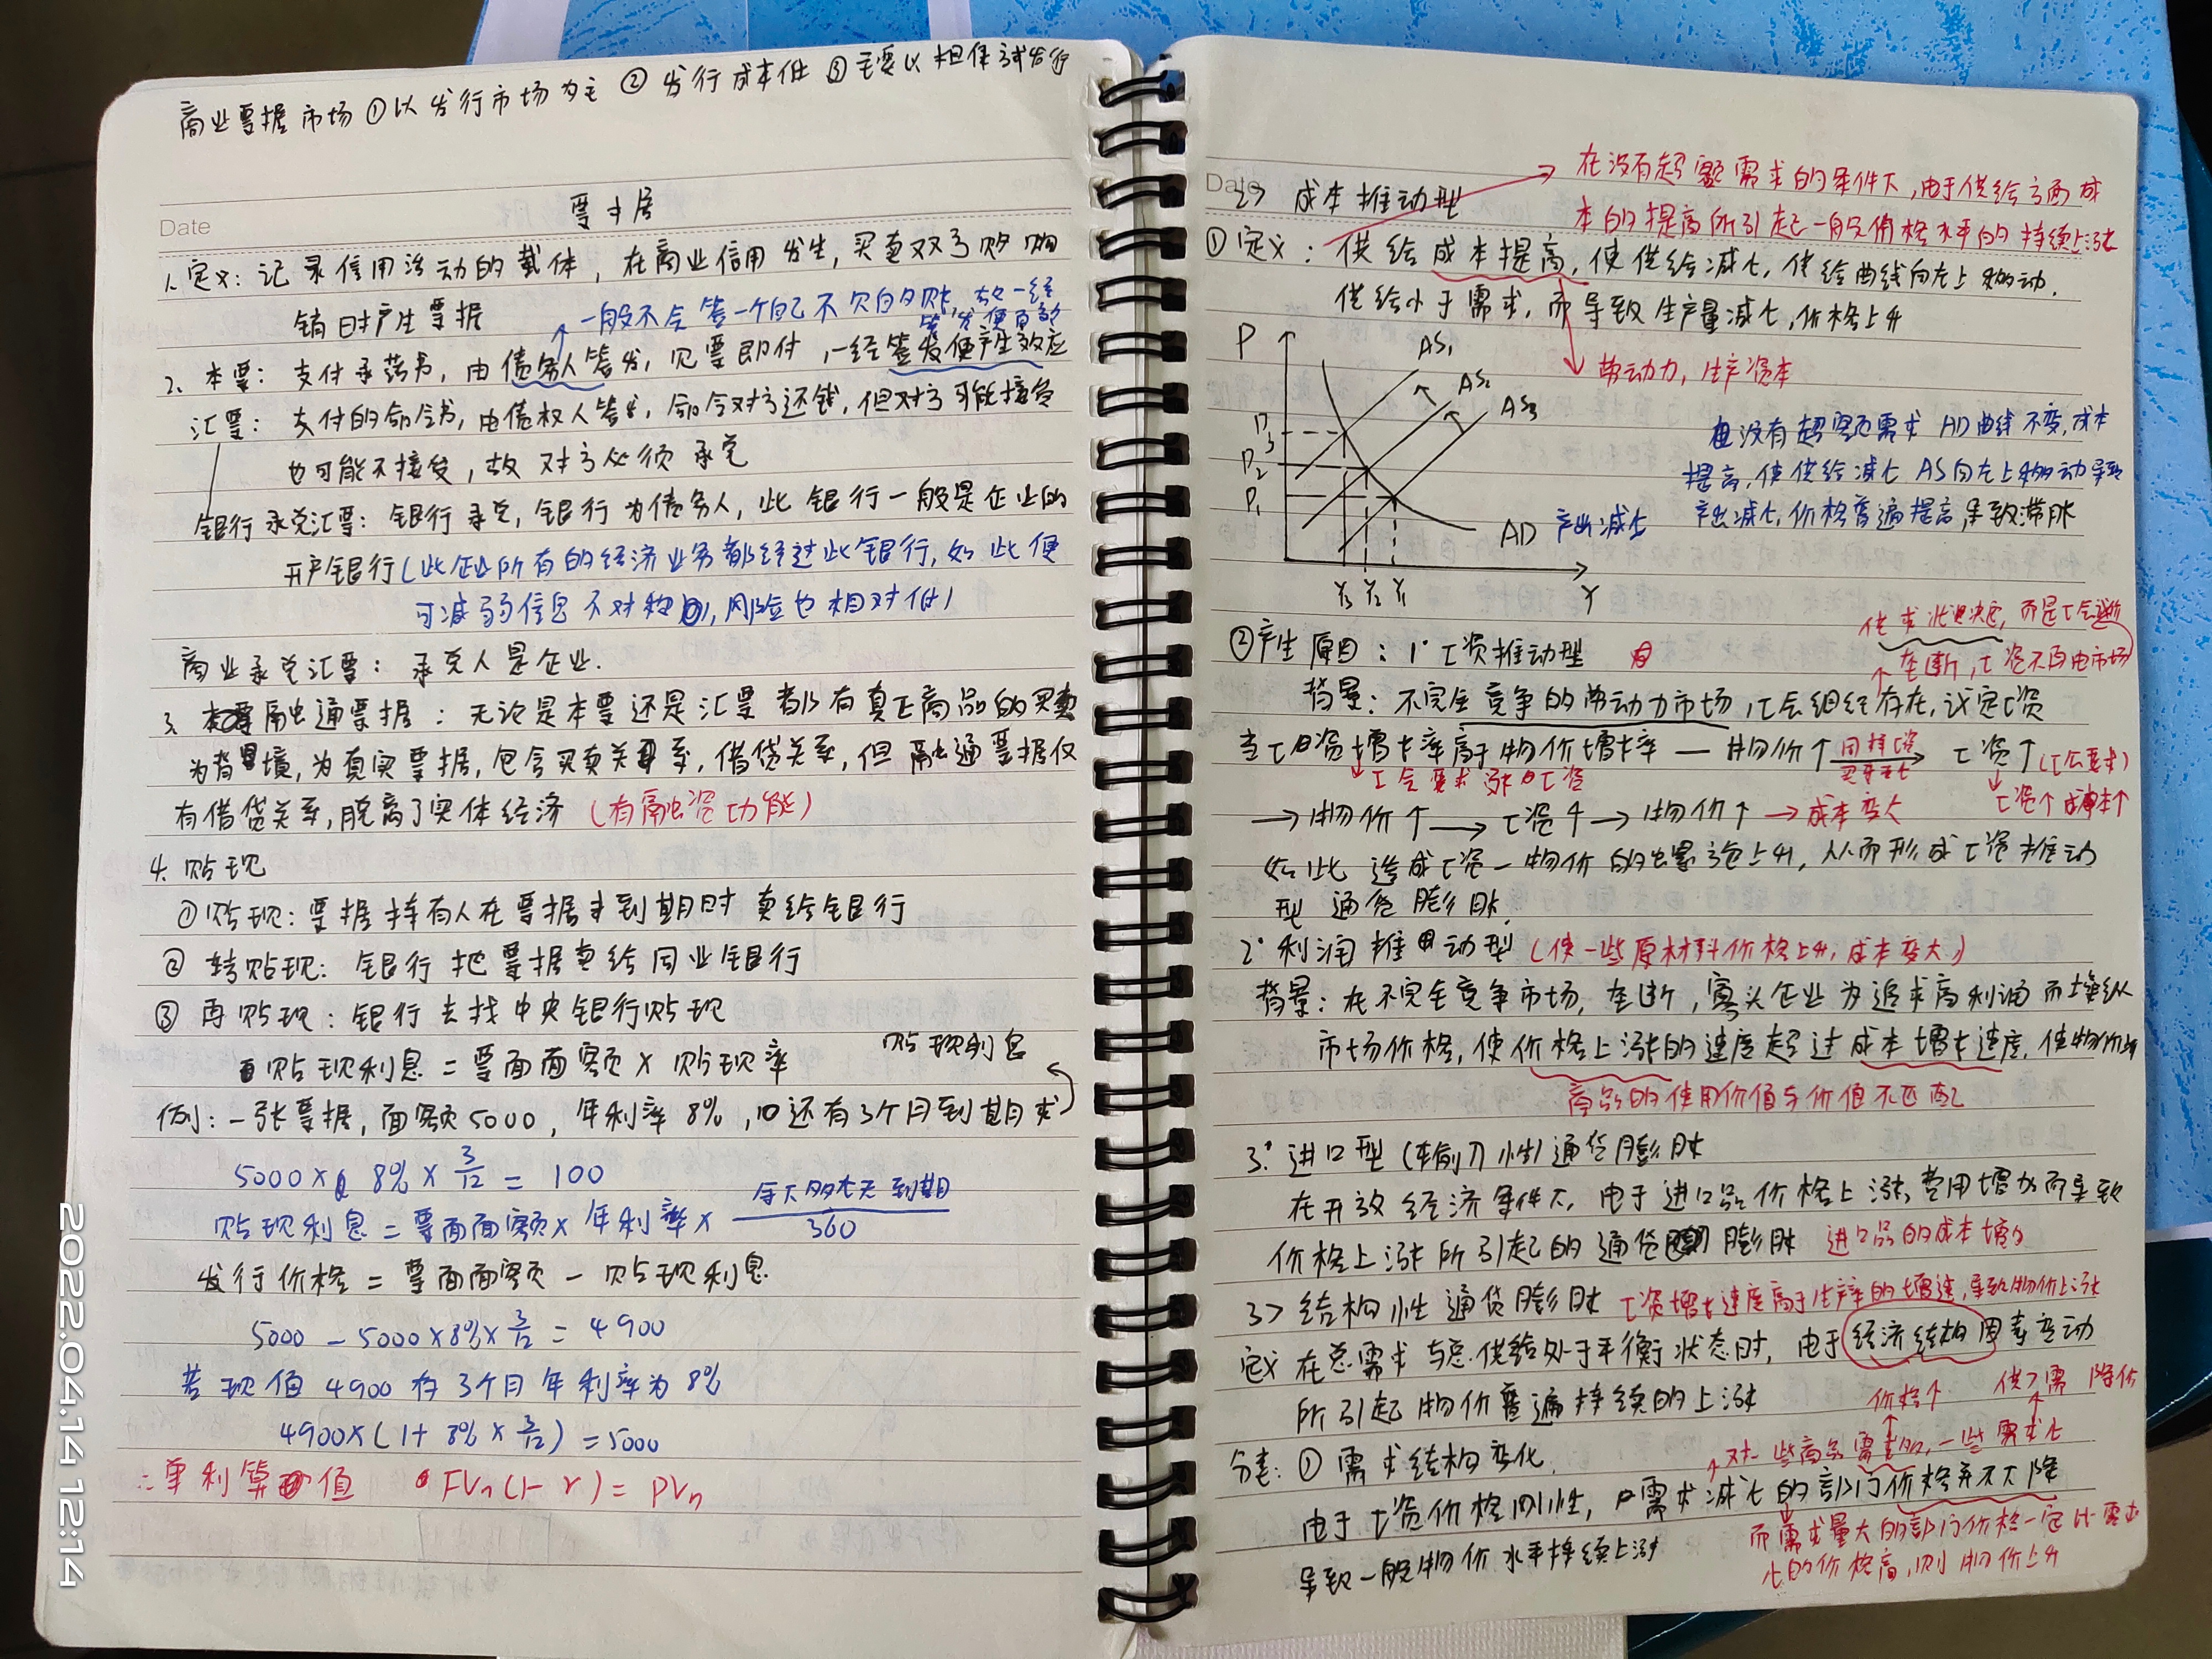 商业票据市场 ①以发行市场为主 ② 发行成本低 ③主要以担保式发行
Date
票据
1.定义: 记录信用活动的载体, 在商业信用发生, 买卖双方赊购
销时产生票据
一般不会签一个自己不欠的账, 故一经
签发便有效
2、本票: 支付承诺书, 由债务人签发, 见票即付, 一经签发便产生效应
汇票: 支付的命令书, 由债权人签发, 命令对方还钱, 但对方可能接受
也可能不接受, 故对方必须承兑
银行承兑汇票: 银行承兑, 银行为债务人, 此银行一般是企业的
开户银行(此企业所有的经济业务都经过此银行, 如此便
可减弱信息不对称, 风险也相对低)
商业承兑汇票: 承兑人是企业.
3. 融通票据: 无论是本票还是汇票都有真正商品的买卖
为背境, 为真实票据, 包含买卖关系, 借贷关系, 但融通票据仅
有借贷关系, 脱离了实体经济 (有融资功能)
4. 贴现
①贴现: 票据持有人在票据未到期时卖给银行
② 转贴现: 银行把票据卖给同业银行
③ 再贴现: 银行去找中央银行贴现
贴现利息 = 票面面额 × 贴现率
贴现利息
例: 一张票据, 面额5000, 年利率8%, 还有3个月到期求
5000 × 8% × 3/12 = 100
贴现利息 = 票面面额 × 年利率 × 到期/360
发行价格 = 票面面额 - 贴现利息
5000 - 5000×8%×3/12 = 4900
若现值4900 存3个月年利率为8%
4900×(1+8%×3/12)=5000
∴单利算值 FVn(1-r)=PVn
Date
2> 成本推动型
在没有超额需求的条件下, 由于供给方面成
本的提高所引起一般价格水平的持续上涨
①定义: 供给成本提高, 使供给减少, 供给曲线向左上移动.
供给小于需求, 而导致生产量减少, 价格上升
劳动力, 生产资本
P
AS1
AS2
AS3
P3
P2
P1
AD
Y3 Y2 Y1
Y
产出减少
没有超额需求 AD曲线不变, 成本
提高, 使供给减少 AS向左上移动导致
产出减少, 价格普遍提高, 导致滞胀
供求状况决定, 而是工会
垄断, 工资不再由市场
②产生原因: 1° 工资推动型
背景: 不完全竞争的劳动力市场, 工会组织存在, 议定工资
当工资增长率高于物价增长率 — 物价↑ → 工资↑(工会要求)
工会要求涨工资
工资↑成本↑
→物价↑ → 工资↑→物价↑ →成本变大
如此造成工资-物价的螺旋上升, 从而形成工资推动
型通货膨胀
2° 利润推动型 (使一些原材料价格上升, 成本变大)
背景: 在不完全竞争市场, 垄断, 寡头企业为追求高利润而操纵
市场价格, 使价格上涨的速度超过成本增长速度, 使物价
商品的使用价值与价值不匹配
3° 进口型 (输入性) 通货膨胀
在开放经济条件下, 由于进口品价格上涨, 费用增加而导致
价格上涨所引起的通货膨胀 进口品的成本增加
3> 结构性通货膨胀 工资增长速度高于生产率的增速, 导致物价上涨
定义 在总需求与总供给处于平衡状态时, 由于经济结构因素变动
所引起物价普遍持续的上涨
价格↑ 供>需 降价
对一些商品需求增加, 一些需求少
分类: ① 需求结构变化
由于工资价格刚性, 需求减少的部门价格并不下降
而需求量大的部门价格一定比需求
少的价格高, 则物价上升
导致一般物价水平持续上涨
2022.04.14 12:14